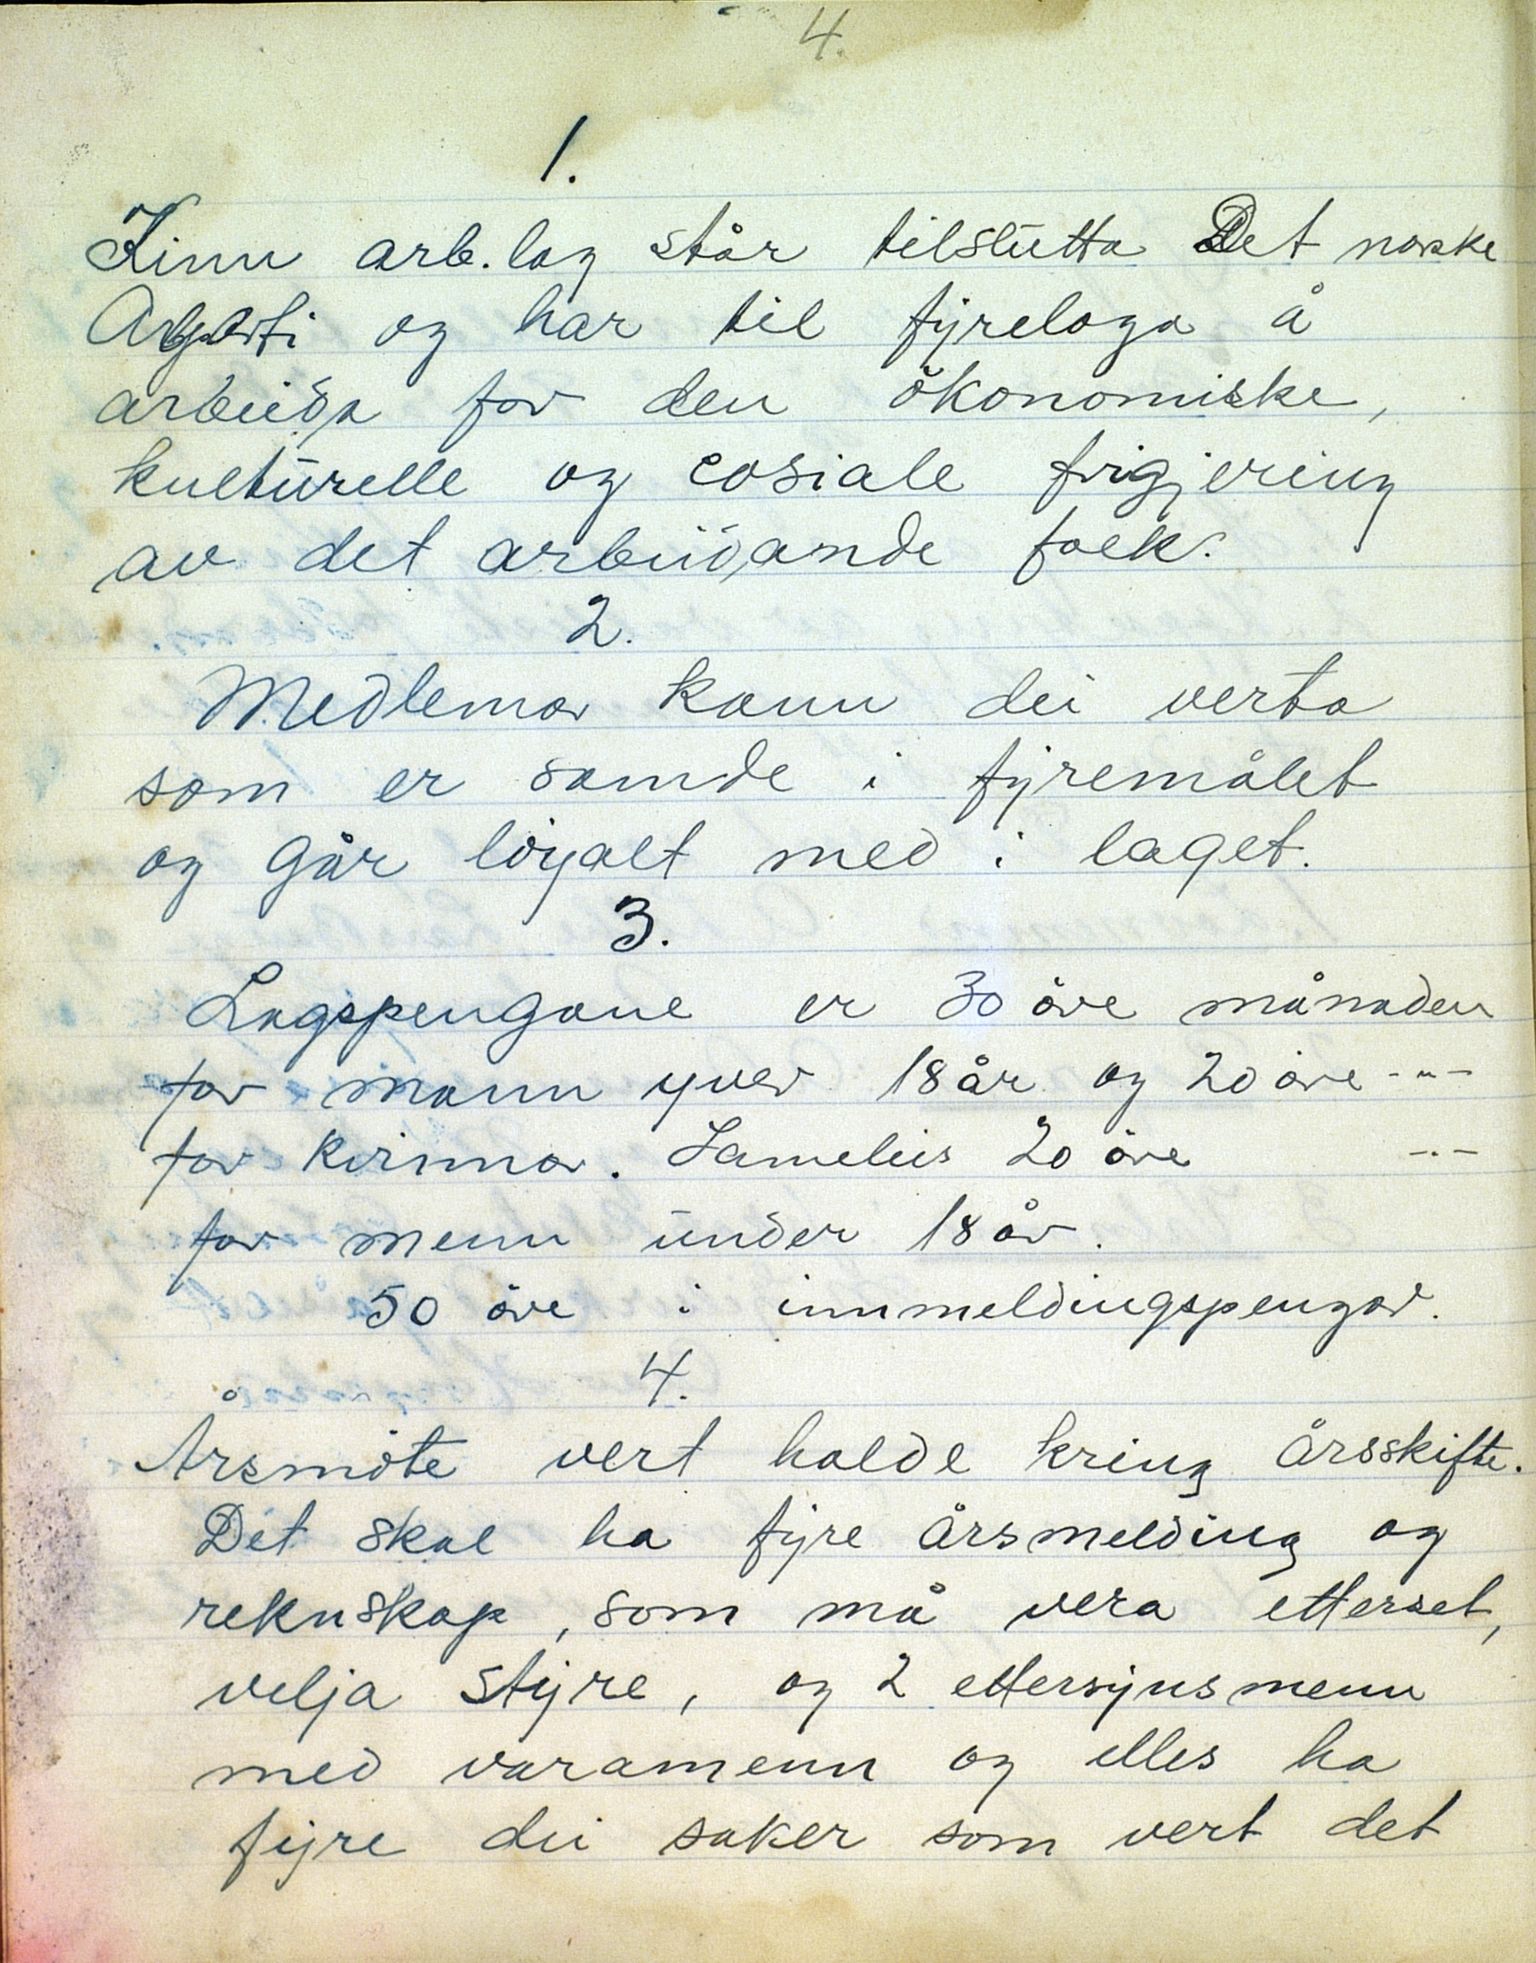 4.
1.
Kinn arb.lag står tilslutta Det norske
Arb.parti og har til fyreloga å
arbeida for den økonomiske,
kulturelle og cosiale frigjering
av det arbeidande folk.
2.
Medlemar kann dei verta
som er samde i fyremålet
og går loyalt med i laget.
3.
Lagspengane er 30 öre månaden
for mann yver 18 år og 20 öre -"-
for kvinnor. Sameleis 20 öre -"-
for menn under 18 år.
50 öre i innmeldingspengar.
4.
Årsmöte vert halde kring årsskifte.
Det skal ha fyre årsmelding og
reknskap, som må vera etterset,
velja styre, og 2 ettersynsmenn
med varamenn og elles ha
fyre dei saker som vert det